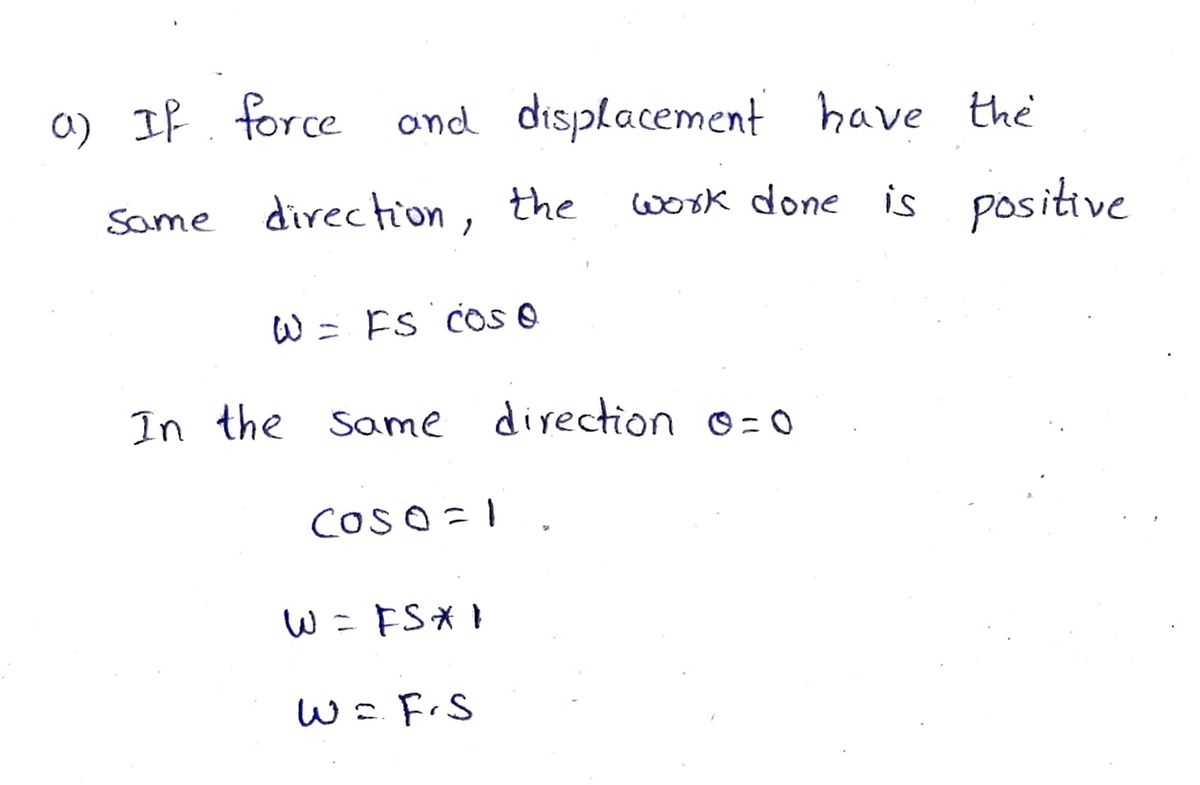 a) If force and displacement have the
same direction, the work done is positive
W = FS cos θ
In the same direction θ=0
cos 0 = 1
W = FS * 1
W = F.S